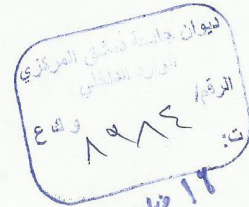 ديوان جامعة دمشق المركزي
الوارد الداخلي
الرقم/ ٨٩٨٤ و ع
ت:
١٦